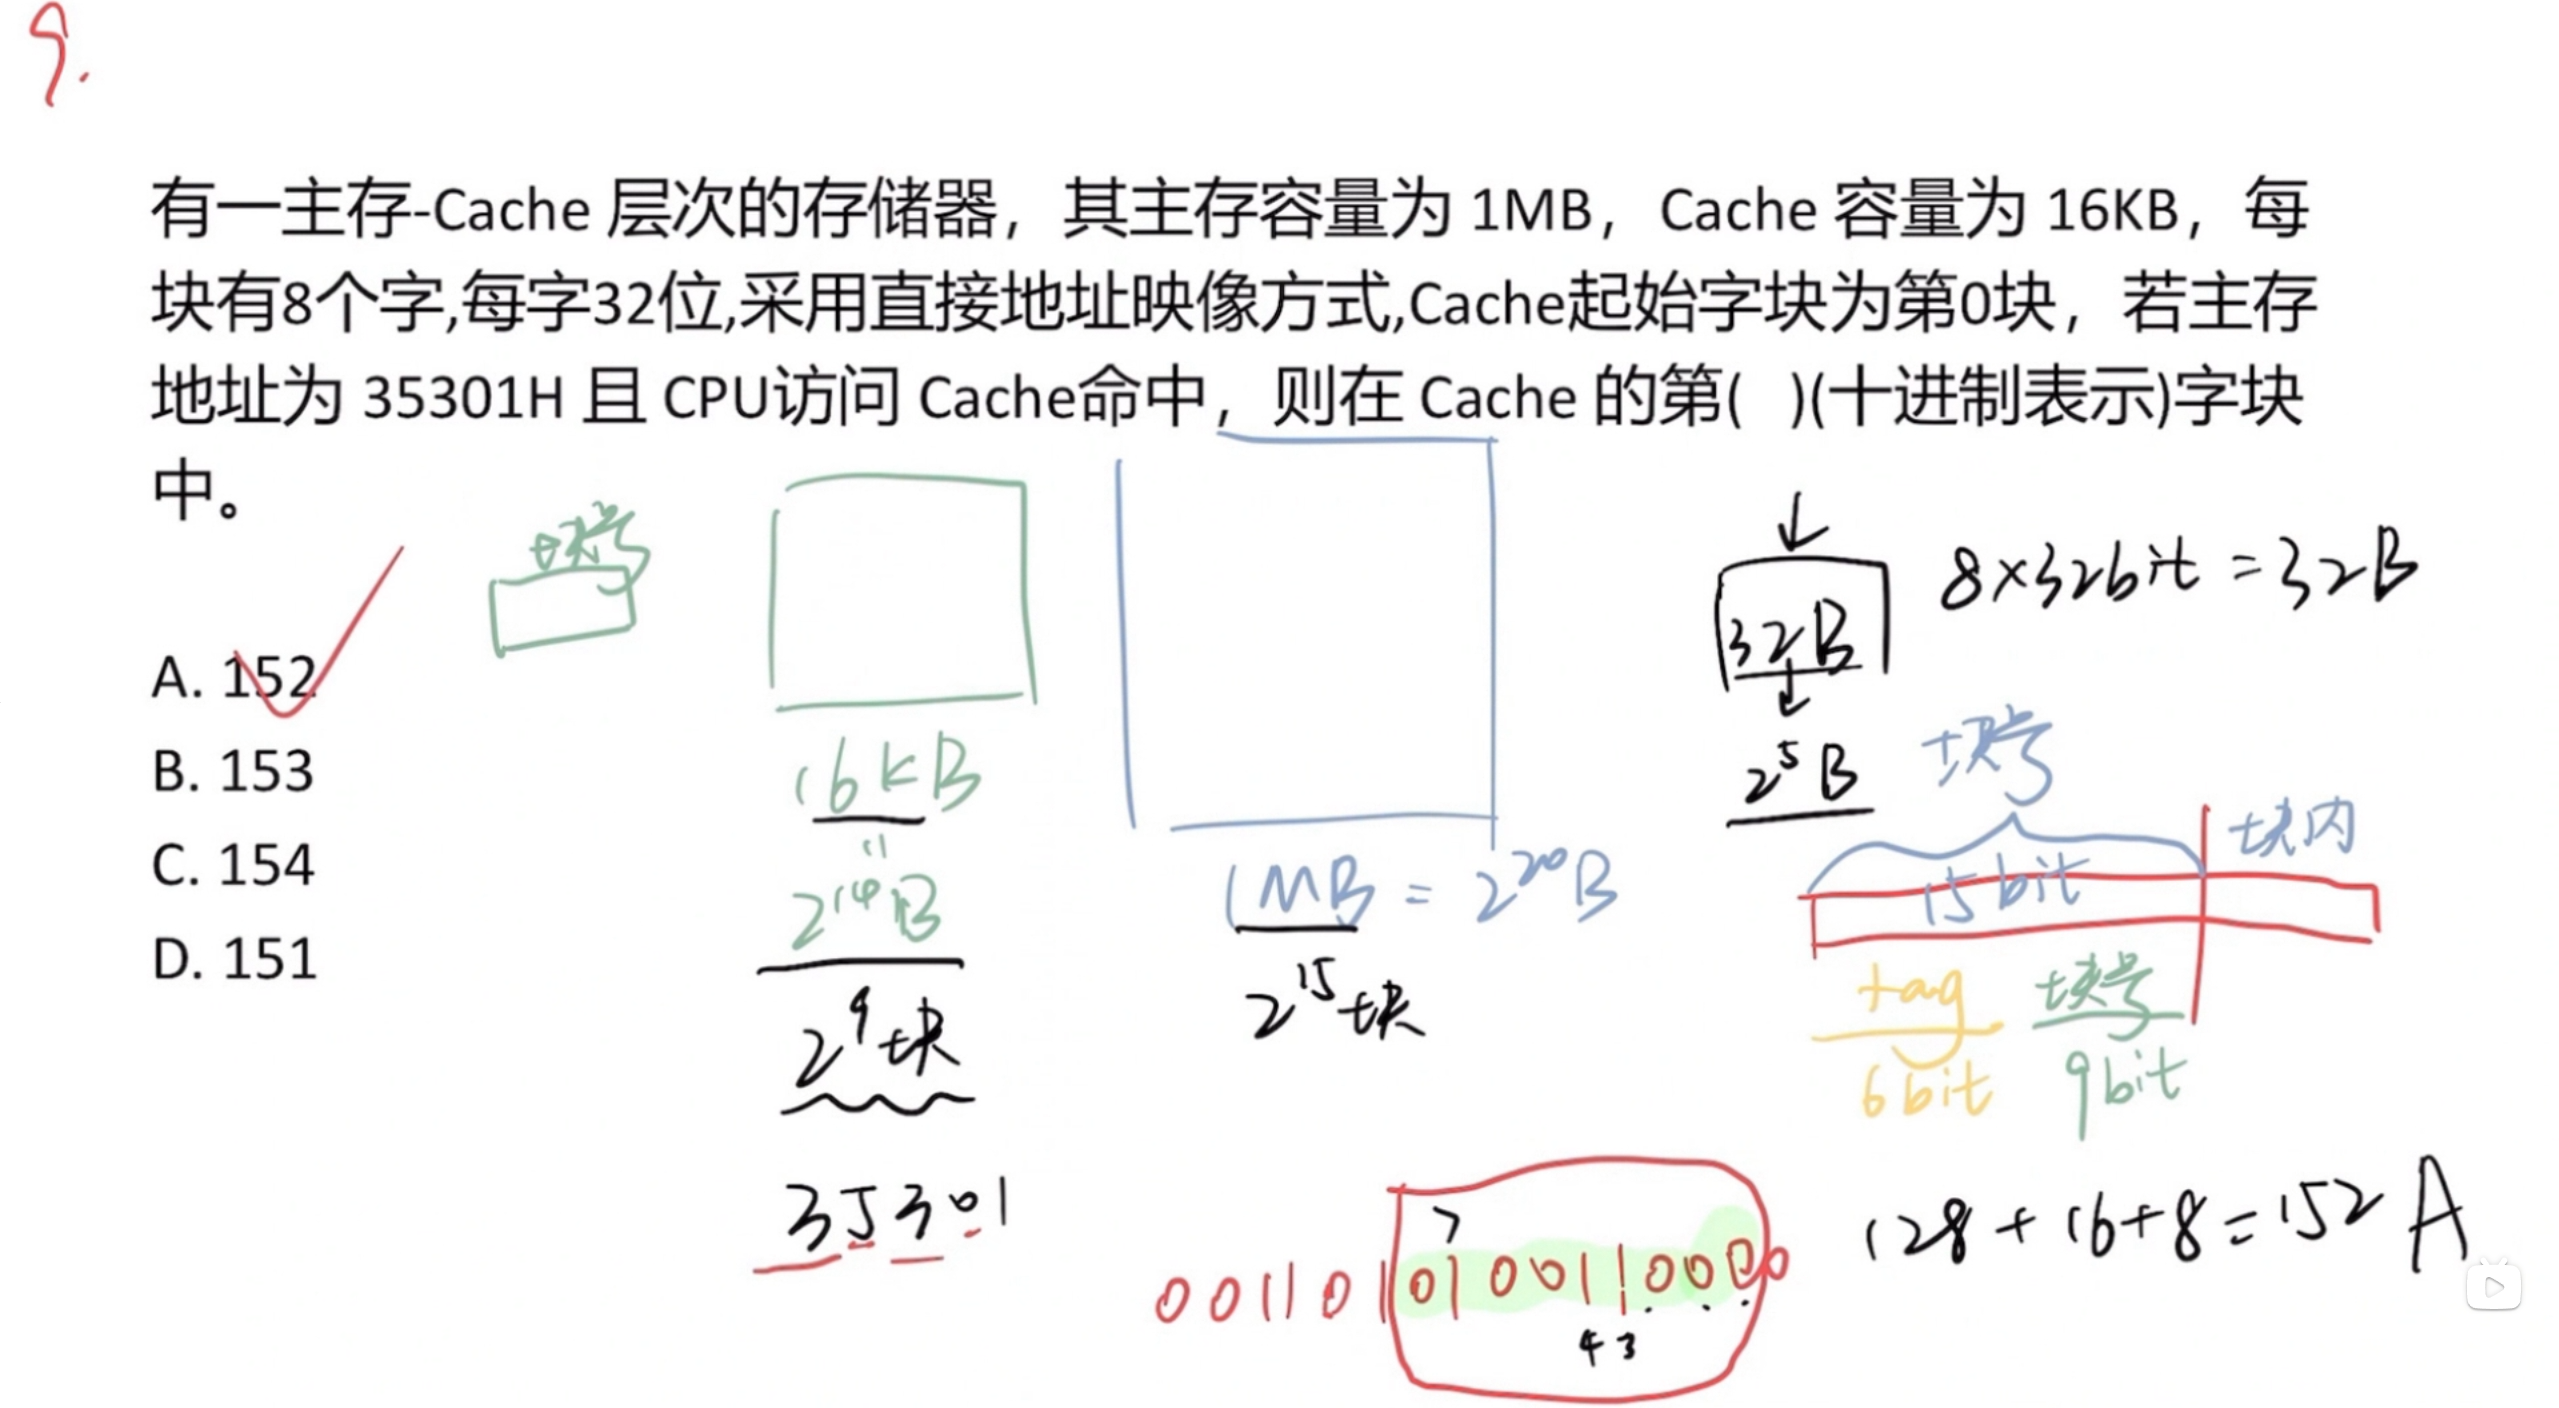 9.
有一主存-Cache 层次的存储器，其主存容量为 1MB，Cache 容量为 16KB，每
块有8个字,每字32位,采用直接地址映像方式,Cache起始字块为第0块，若主存
地址为 35301H 且 CPU访问 Cache命中，则在 Cache 的第( )(十进制表示)字块
中。
块号
A. 152
B. 153
C. 154
D. 151
16KB
"
2^14 B
2^9 块
1MB = 2^20 B
2^15 块
32B
8×32bit = 32B
2^5 B
块号
块内
15bit
tag
块号
6bit
9bit
35301
7
0011010100110000
43
128+16+8=152 A